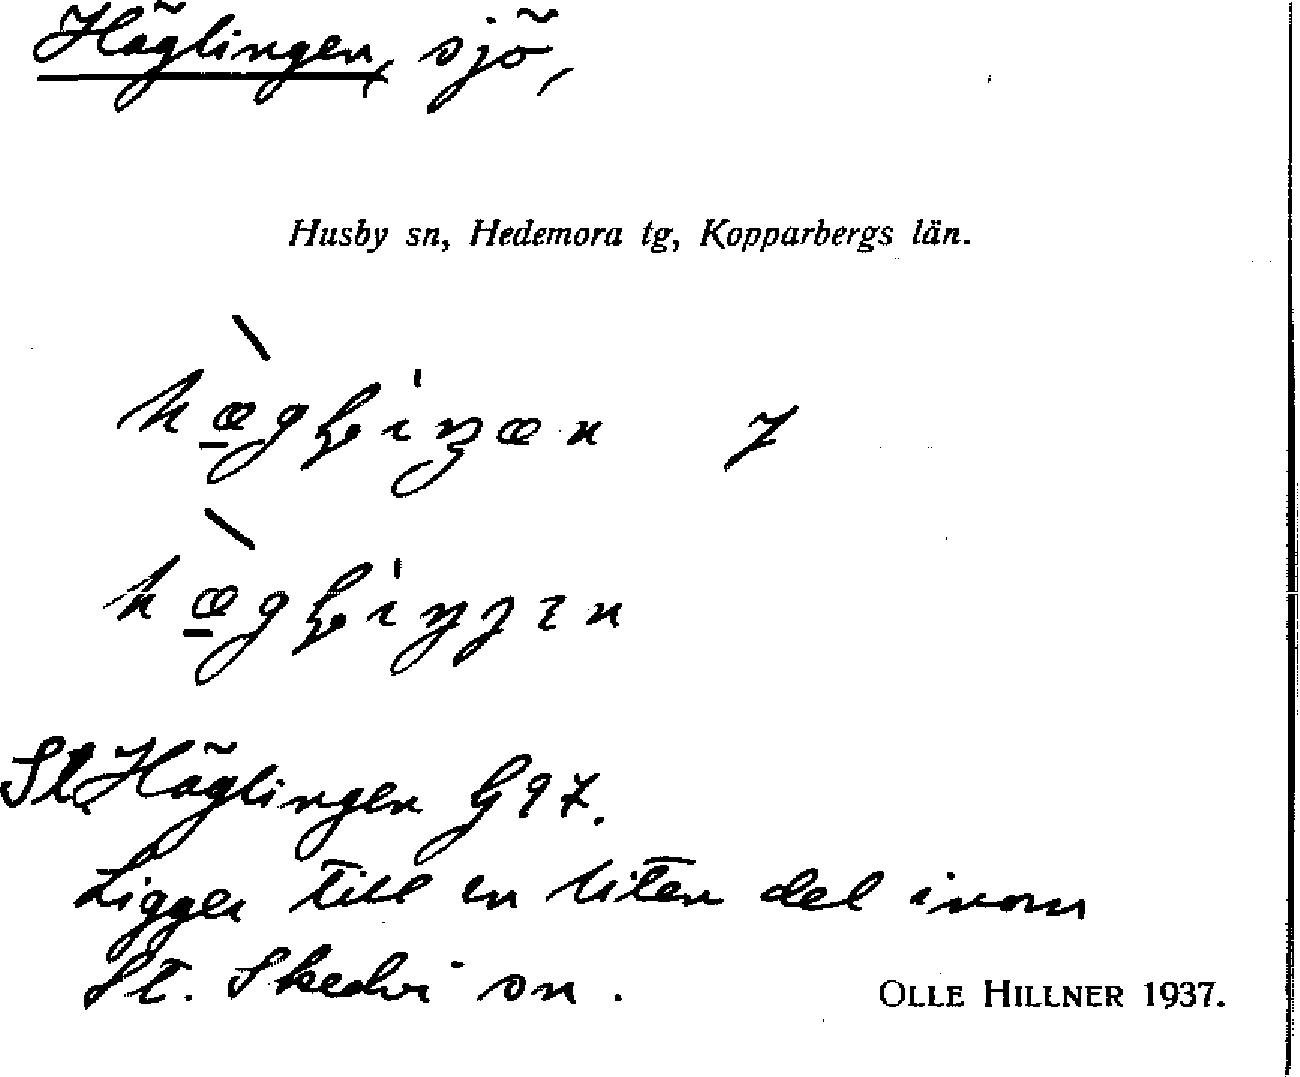 Häglingen, sjö,
Husby sn, Hedemora tg, Kopparbergs län.
Häglingen G97.
Ligger till en liten del inom
St. Skedvi sn.
OLLE HILLNER 1937.